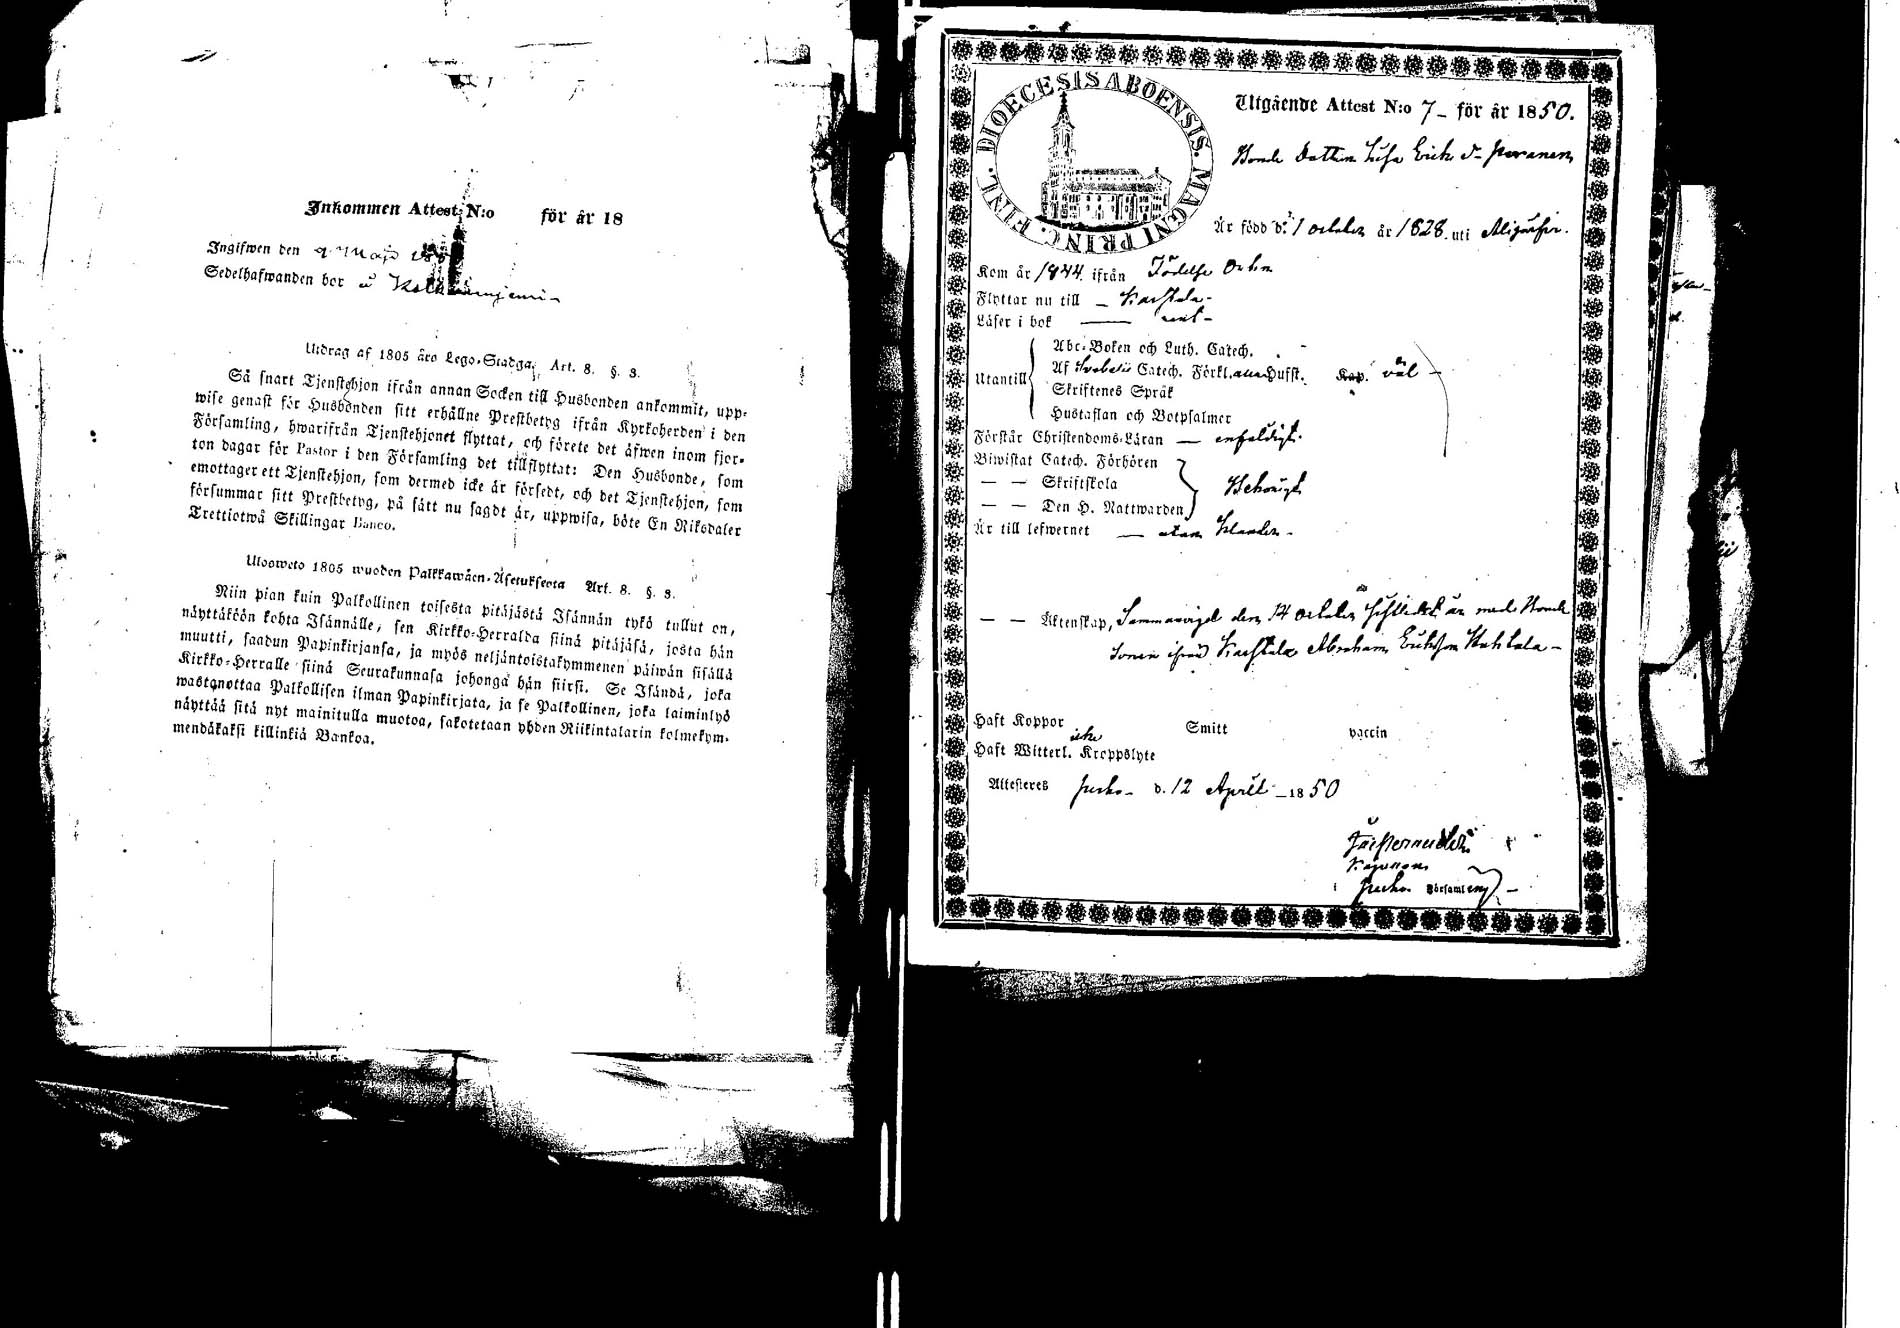 Inkommen Attest N:o för år 18
Ingifwen den 9 Maji 185
Sedelhafwanden bor å
Utdrag af 1805 åro Lego-Stadga, Art. 8. §. 3.
Så snart Tjenstehjon ifrån annan Socken till Husbonden ankommit, upp-
wise genast för Husbonden sitt erhållne Prestbetyg ifrån Kyrkoherden i den
Församling, hwarifrån Tjenstehjonet flyttat, och förete det äfwen inom fjor-
ton dagar för Pastor i den Församling det tillflyttat: Den Husbonde, som
emottager ett Tjenstehjon, som dermed icke är försedt, och det Tjenstehjon, som
försummar sitt Prestbetyg, på sätt nu sagdt är, uppwisa, böte En Riksdaler
Trettiotwå Skillingar Banco.
Ulosweto 1805 wuoden Palkkawäen-Asetuksesta Art. 8. §. 3.
Niin pian kuin Palkollinen toisesta pitäjästä Isännän tykö tullut on,
näyttäköön kohta Isännälle, sen Kirkko-Herralda siinä pitäjäsä, josta hän
muutti, saadun Papinkirjansa, ja myös neljäntoistakymmenen päiwän sisällä
Kirkko-Herralle siinä Seurakunnasa johonga hän siirsi. Se Isändä, joka
wastanottaa Palkollisen ilman Papinkirjata, ja se Palkollinen, joka laiminlyö
näyttää sitä nyt mainitulla muotoa, sakotetaan yhden Riikintalarin kolmekym-
mendäkaksi killinkiä Bankoa.
DIOECESIS ABOENSIS. MAGNI PRINC. FINL.
Utgående Attest N:o 7 - för år 1850.
Bonde Dottren Lisa Erics d-
Är född d. 1 october år 1828. uti
Kom år 1844. ifrån Födelse Orten
Flyttar nu till - Karstula -
Läser i bok —
Abc-Boken och Luth. Catech.
Utantill
Af Svebelii Catech. Förkl. Hufst. Kap. väl -
Skriftenes Språk
Hustaflan och Botpsalmer
Förstår Christendoms-Läran — enfaldigt.
Biwistat Catech. Förhören
— — Skriftskola Behörigt
— — Den H. Nattwarden
Är till lefwernet — utan klander -
— — Äktenskap, Sammanvigd den 14 october år med Bonde
Sonen ifrån Karstula Abraham Ericsson
Haft Koppor Smitt vaccin
icke
Haft Witterl. Kroppslyte
Attesteres d. 12 April - 1850
Kapellan
Församling